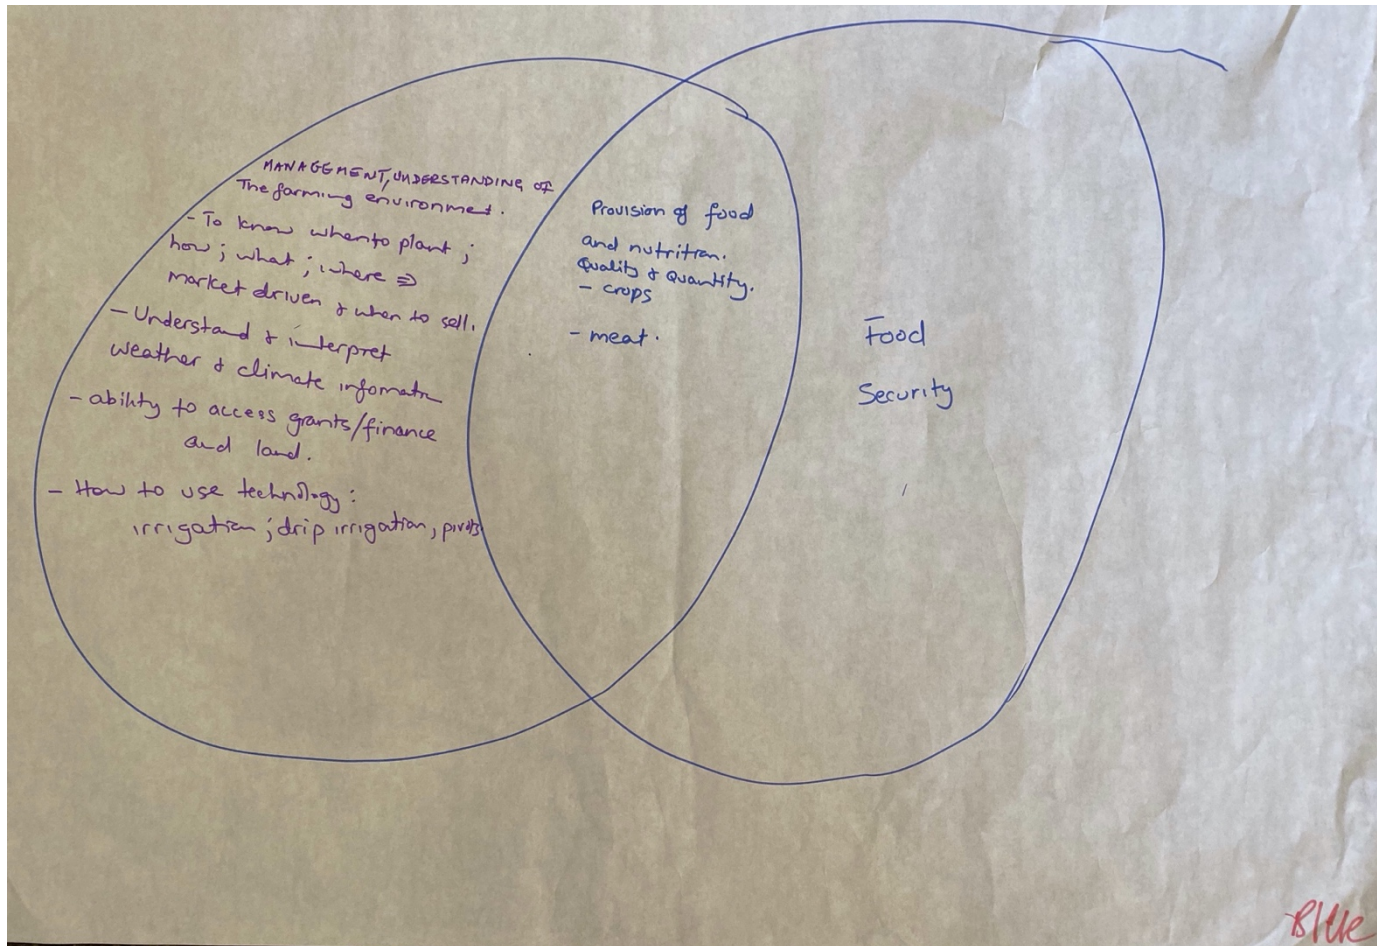 MANAGEMENT, UNDERSTANDING OF
The farming environment.
- To know when to plant ;
how ; what ; where ⇒
market driven & when to sell.
- Understand & interpret
weather & climate informatn
- ability to access grants/finance
and land.
- How to use technology :
irrigation ; drip irrigation, pivots
Provision of food
and nutrition.
Quality & Quantity.
- crops
- meat.
Food
Security
Blue